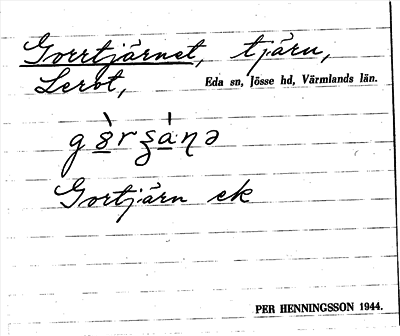 Gorrtjärnet, tjärn,
Lerot, Eda sn, Jösse hd, Värmlands län.
Gortjärn ek
PER HENNINGSSON 1944.